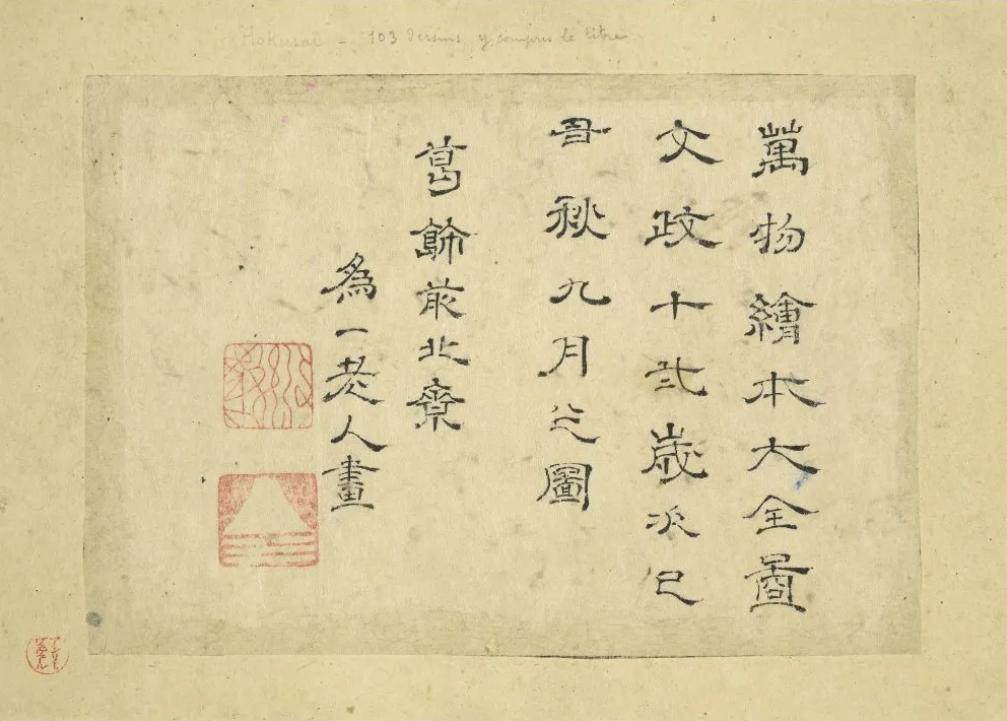 Hokusaï - 103 dessins, y compris le titre
萬物繪本大全圖
文政十弐歳次己
丑秋九月之圖
葛飾前北齋
為一老人畫